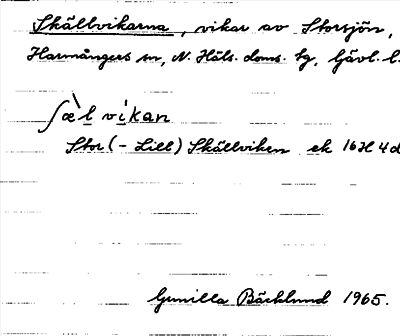 Skällvikarna, vikar av Storsjön,
Harmångers sn, N. Häls. doms. tg, Gävl. l.
ʃæ̀l víkan
Stor (- Lill) Skällviken ek 16H 4d
Gunilla Bäcklund 1965.